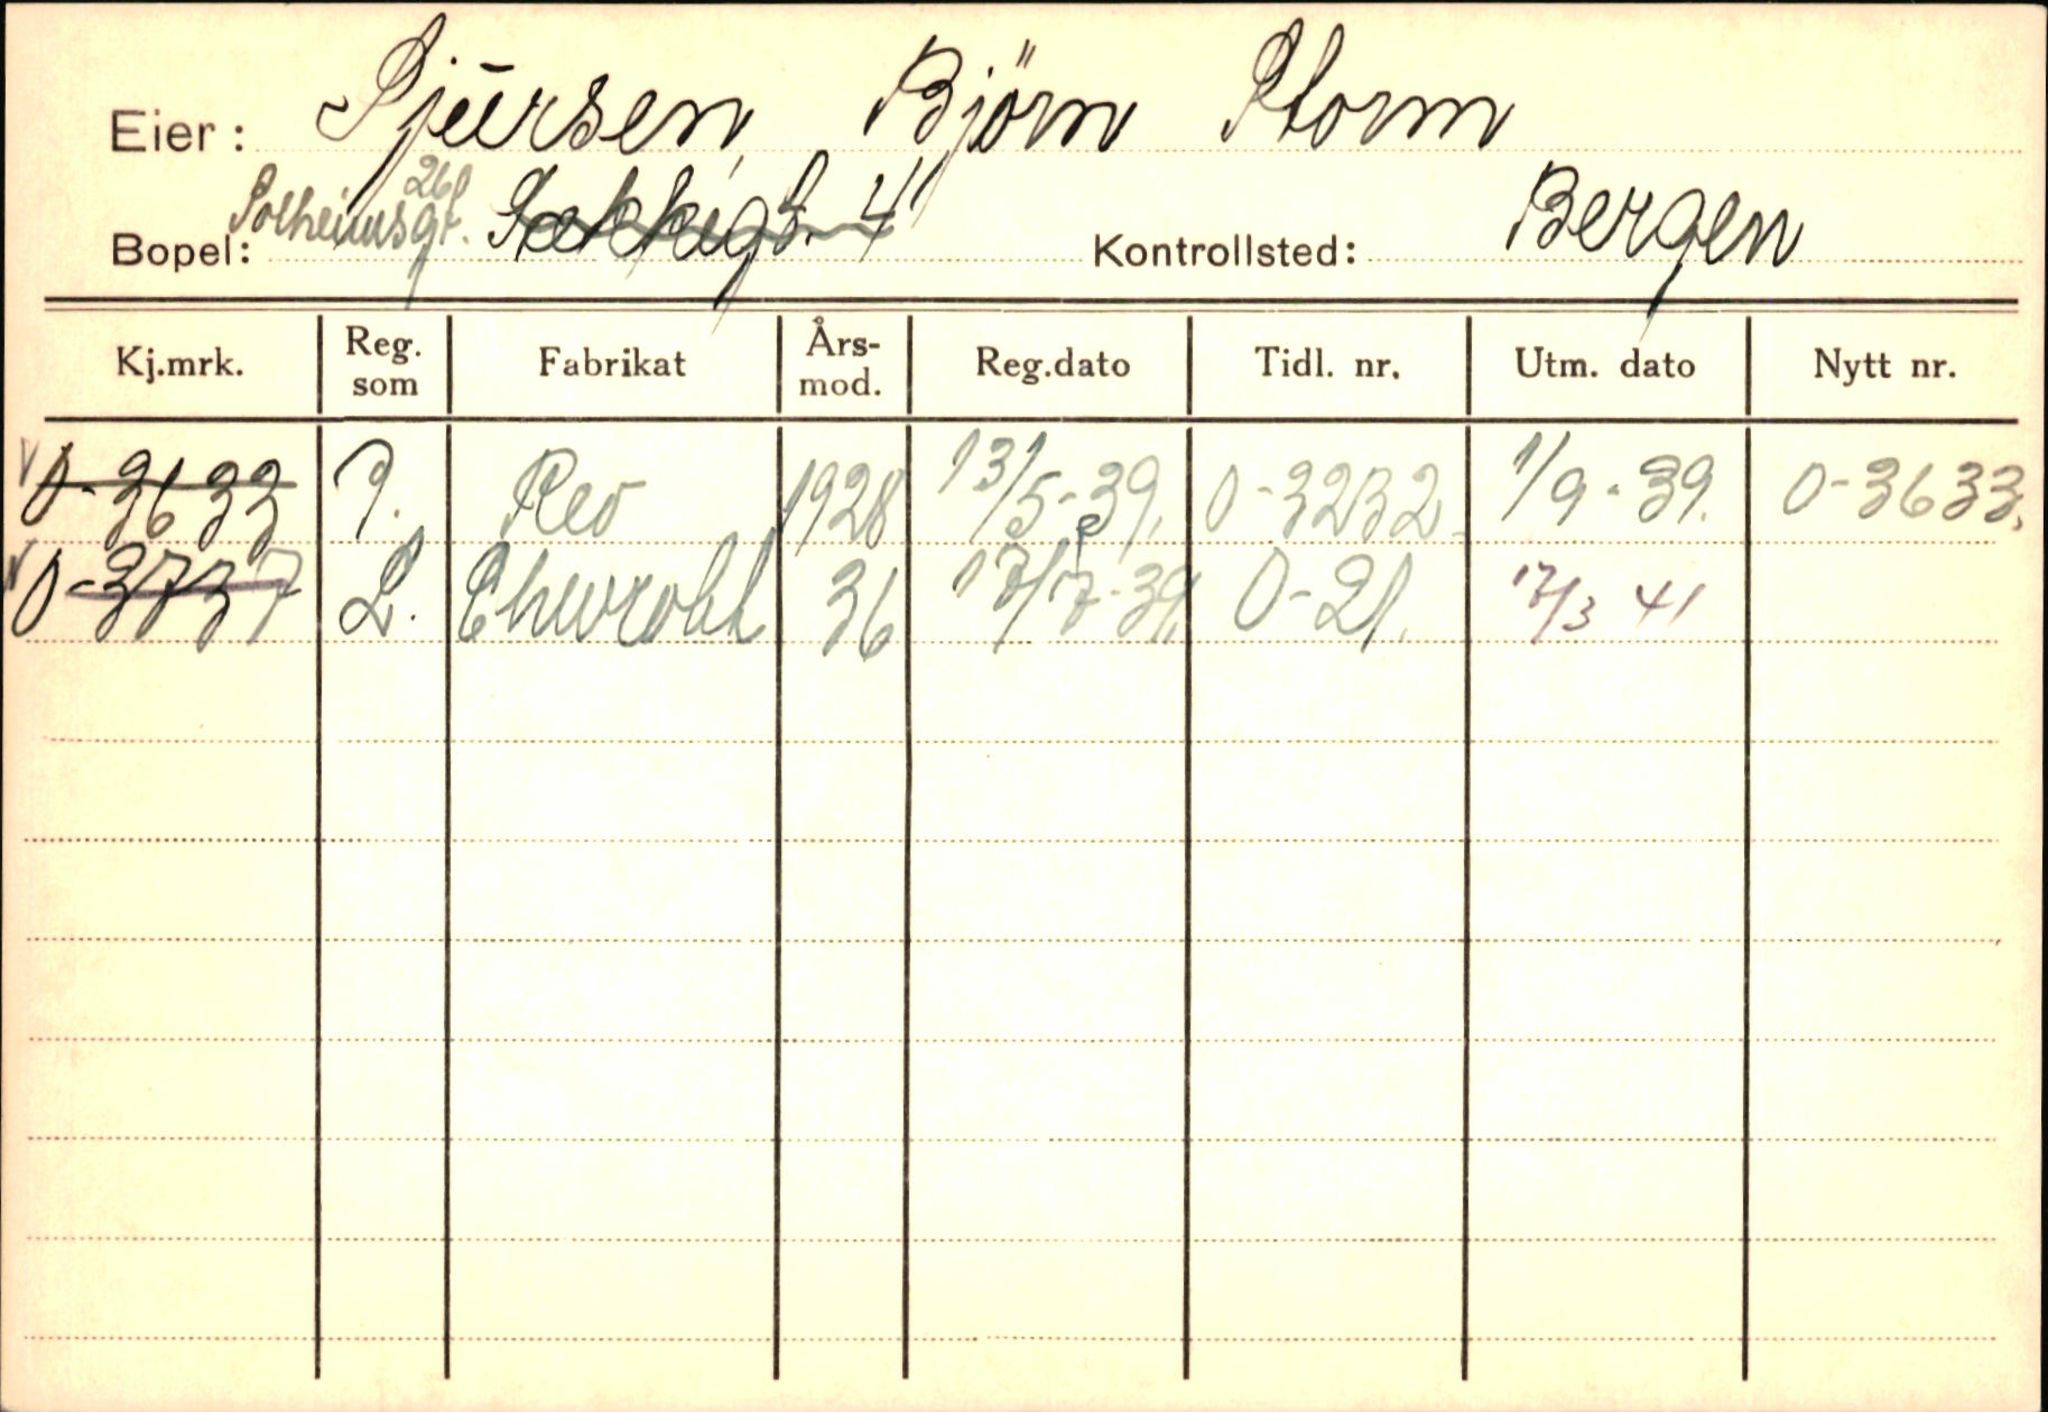 Eier: Sjūrsen, Björn Storm
26b
Bopel: Solheimsgt. Sækkegt. 4 Kontrollsted: Bergen
Kj.mrk. Reg. som Fabrikat Års-mod. Reg.dato Tidl. nr. Utm. dato Nytt nr.
V O-3633 P. Reo 1928 13/5-39. O-3232 1/9-39. O-3633.
V O-3737 L. Chevrolet 36 17/7-39. O-21. 17/3 41